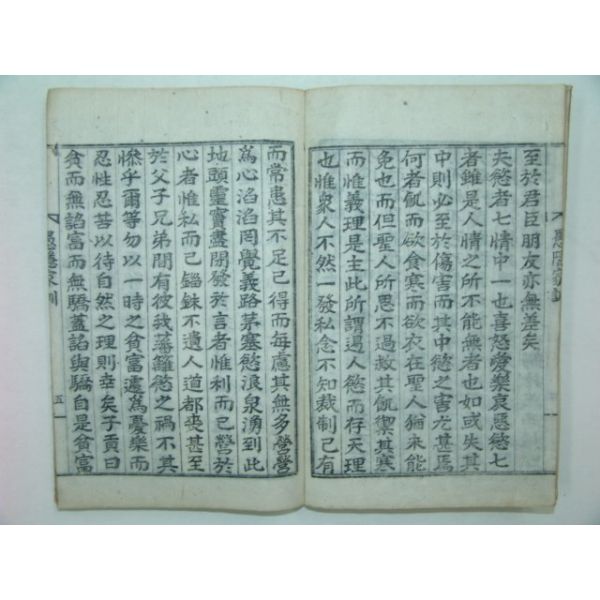 至於君臣朋友亦無差矣
夫慾者七情中一也喜怒愛樂哀惡慾七
者雖是人情之所不能無者也如或失其
中則必至於傷害而其中慾之害尤甚焉
何者飢而欲食寒而欲衣在聖人猶未能
免也而但聖人所思不過救其飢禦其寒
而惟義理是主此所謂遏人慾而存天理
也惟衆人不然一發私念不知裁制已有
而常患其不足已得而每慮其無多營營
爲心滔滔罔覺義路茅塞慾浪泉湧到此
地頭靈竇盡閉發於言者惟利而已營於
心者惟私而已錙銖不遺人道都喪甚至
於父子兄弟間有彼我藩籬慾之禍不其
慘乎爾等勿以一時之貧富遽爲憂樂而
忍性忍苦以待自然之理則幸矣子貢曰
貧而無諂富而無驕蓋諂與驕自是貧富
家訓
五